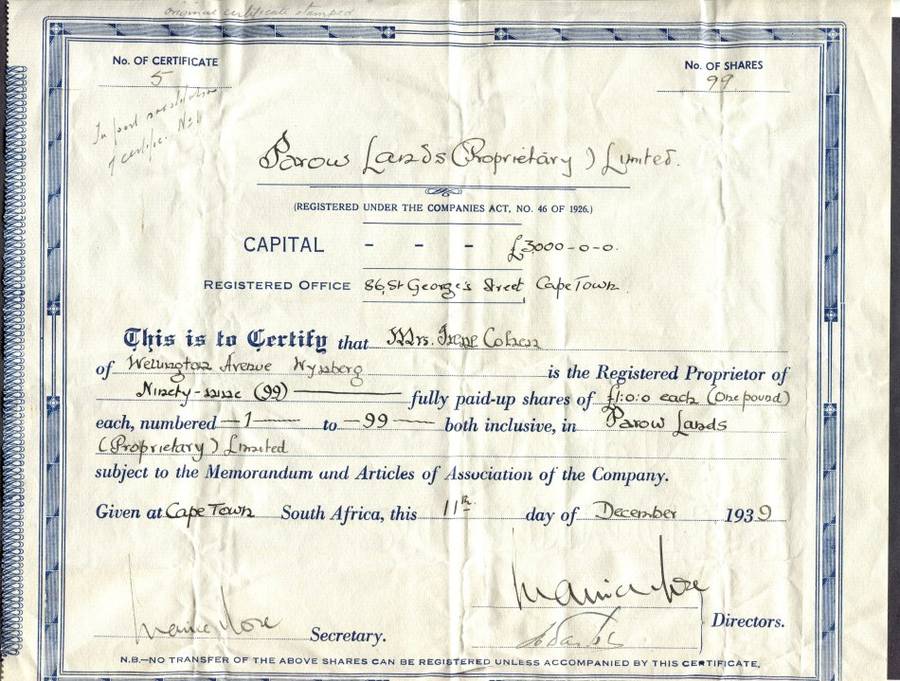 original certificate stamped
No. OF CERTIFICATE
5
No. OF SHARES
99
In part
of certific. No 4
Parow Lands (Proprietary) Limited.
(REGISTERED UNDER THE COMPANIES ACT, NO. 46 OF 1926.)
CAPITAL - - - £3000-0-0.
REGISTERED OFFICE 86, St George's Street, Cape Town.
This is to Certify that Mrs. Irene Cohen
of Wellington Avenue Wynberg is the Registered Proprietor of
Ninety-nine (99) fully paid-up shares of £1:0:0 each (One pound)
each, numbered —1— to —99— both inclusive, in Parow Lands
(Proprietary) Limited
subject to the Memorandum and Articles of Association of the Company.
Given at Cape Town South Africa, this 11th day of December 1939
Secretary.
Directors.
N.B.—NO TRANSFER OF THE ABOVE SHARES CAN BE REGISTERED UNLESS ACCOMPANIED BY THIS CERTIFICATE.